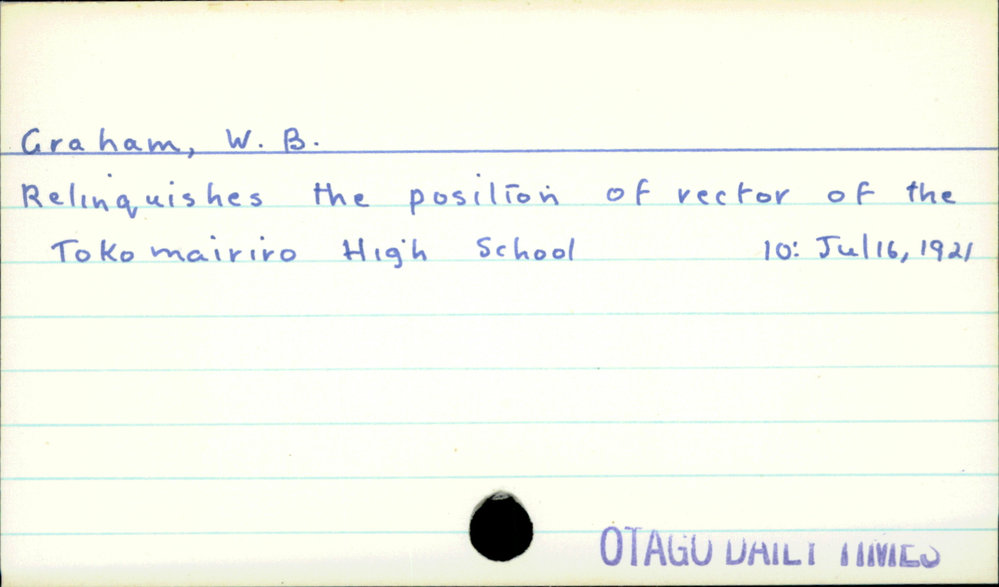 Graham, W. B.
Relinquishes the position of rector of the
Tokomairiro High School 10: Jul 16, 1921
OTAGO DAILY TIMES